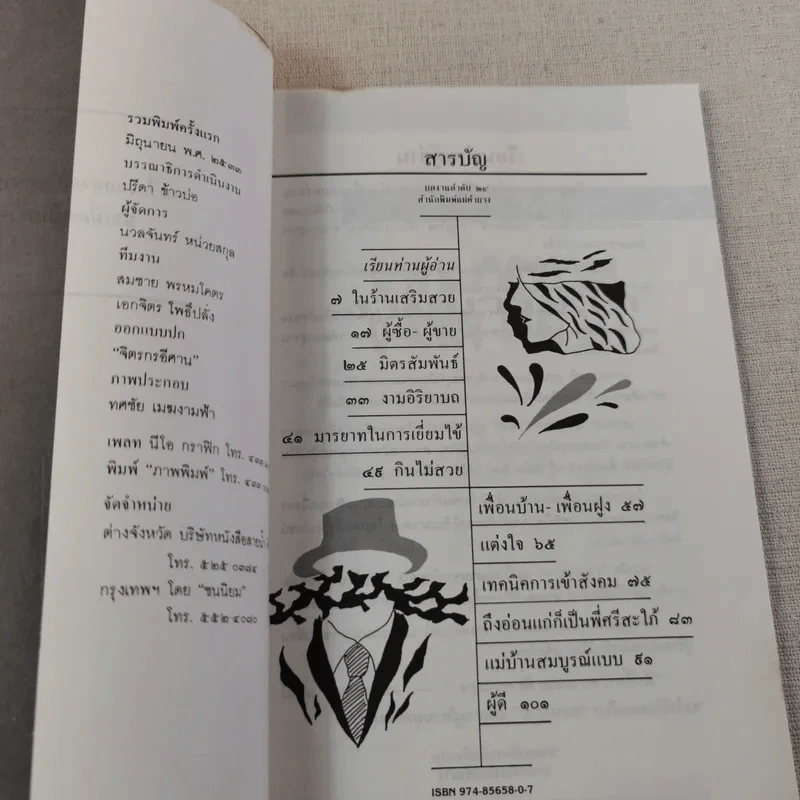 รวมพิมพ์ครั้งแรก
มิถุนายน พ.ศ. ๒๕๓๓
บรรณาธิการดำเนินงาน
ปรีดา ข้าวบ่อ
ผู้จัดการ
นวลจันทร์ หน่วยสกุล
ทีมงาน
สมชาย พรหมโคตร
เอกจิตร โพธิ์ปลั่ง
ออกแบบปก
“จิตรกรอีศาน”
ภาพประกอบ
ทศชัย เมฆงามฟ้า
เพลท นีโอ กราฟิก โทร.
พิมพ์ “ภาพพิมพ์” โทร.
จัดจำหน่าย
ต่างจังหวัด บริษัทหนังสือสายน้ำ
โทร. ๕๒๕ ๐๓๘๔
กรุงเทพฯ โดย “ชนนิยม”
โทร. ๕๕๒ ๔๐๘๐
สารบัญ
ผลงานลำดับ ๒๙
สำนักพิมพ์แม่คำผาง
เรียนท่านผู้อ่าน
๗ ในร้านเสริมสวย
๑๗ ผู้ซื้อ- ผู้ขาย
๒๕ มิตรสัมพันธ์
๓๓ งามอิริยาบถ
๔๑ มารยาทในการเยี่ยมไข้
๔๙ กินไม่สวย
เพื่อนบ้าน- เพื่อนฝูง ๕๗
แต่งใจ ๖๕
เทคนิคการเข้าสังคม ๗๕
ถึงอ่อนแก่ก็เป็นพี่ศรีสะใภ้ ๘๓
แม่บ้านสมบูรณ์แบบ ๙๑
ผู้ดี ๑๐๑
ISBN 974-85658-0-7